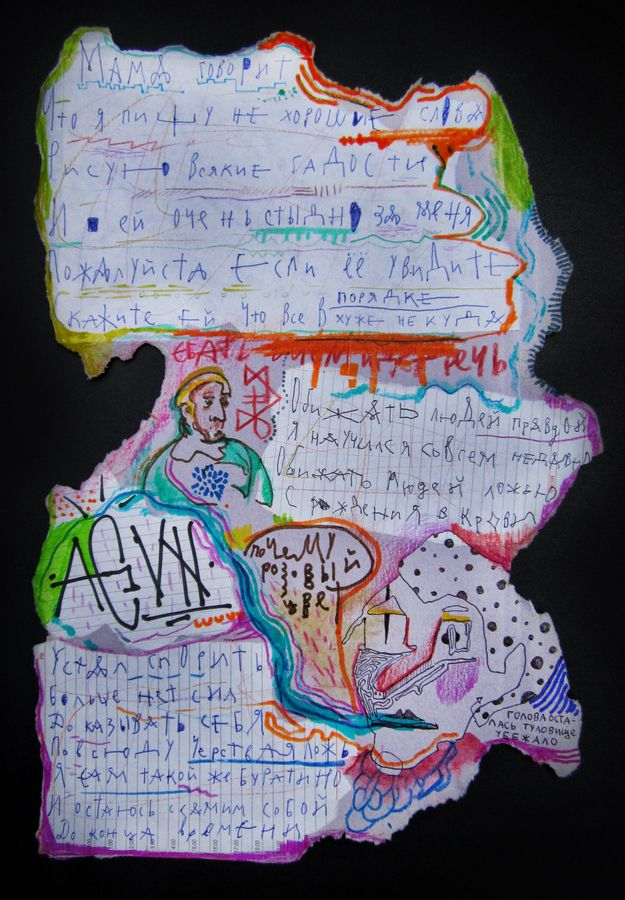 Мама говорит
Что я пишу не хорошие слова
Рисую всякие гадости
И ей очень стыдно за меня
Пожалуйста если её увидите
Скажите ей что все в порядке
хуже не куда
речь
Обижать людей правдой
Я научился совсем недавно
Обижать людей ложью
С рождения в крови
почему
розовый
цве
ГОЛОВА ОСТА-
ЛАСЬ ТУЛОВИЩЕ
УБЕЖАЛО
Устал спорить
Больше нет сил
Доказывать себя
Повсюду черствая ложь
Я сам такой же буратино
И остаюсь самим собой
До конца времени